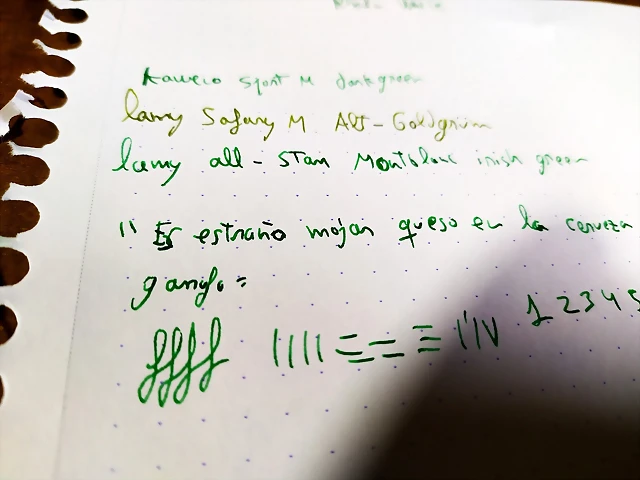 Kaweco Sport M dark green
Lamy Safary M Alt-Goldgrün
Lamy all-Star Montblanc irish green
" Es estraño mojar queso en la cerveza
ffff |||| = = ≡ ||| 1 2 3 4 5